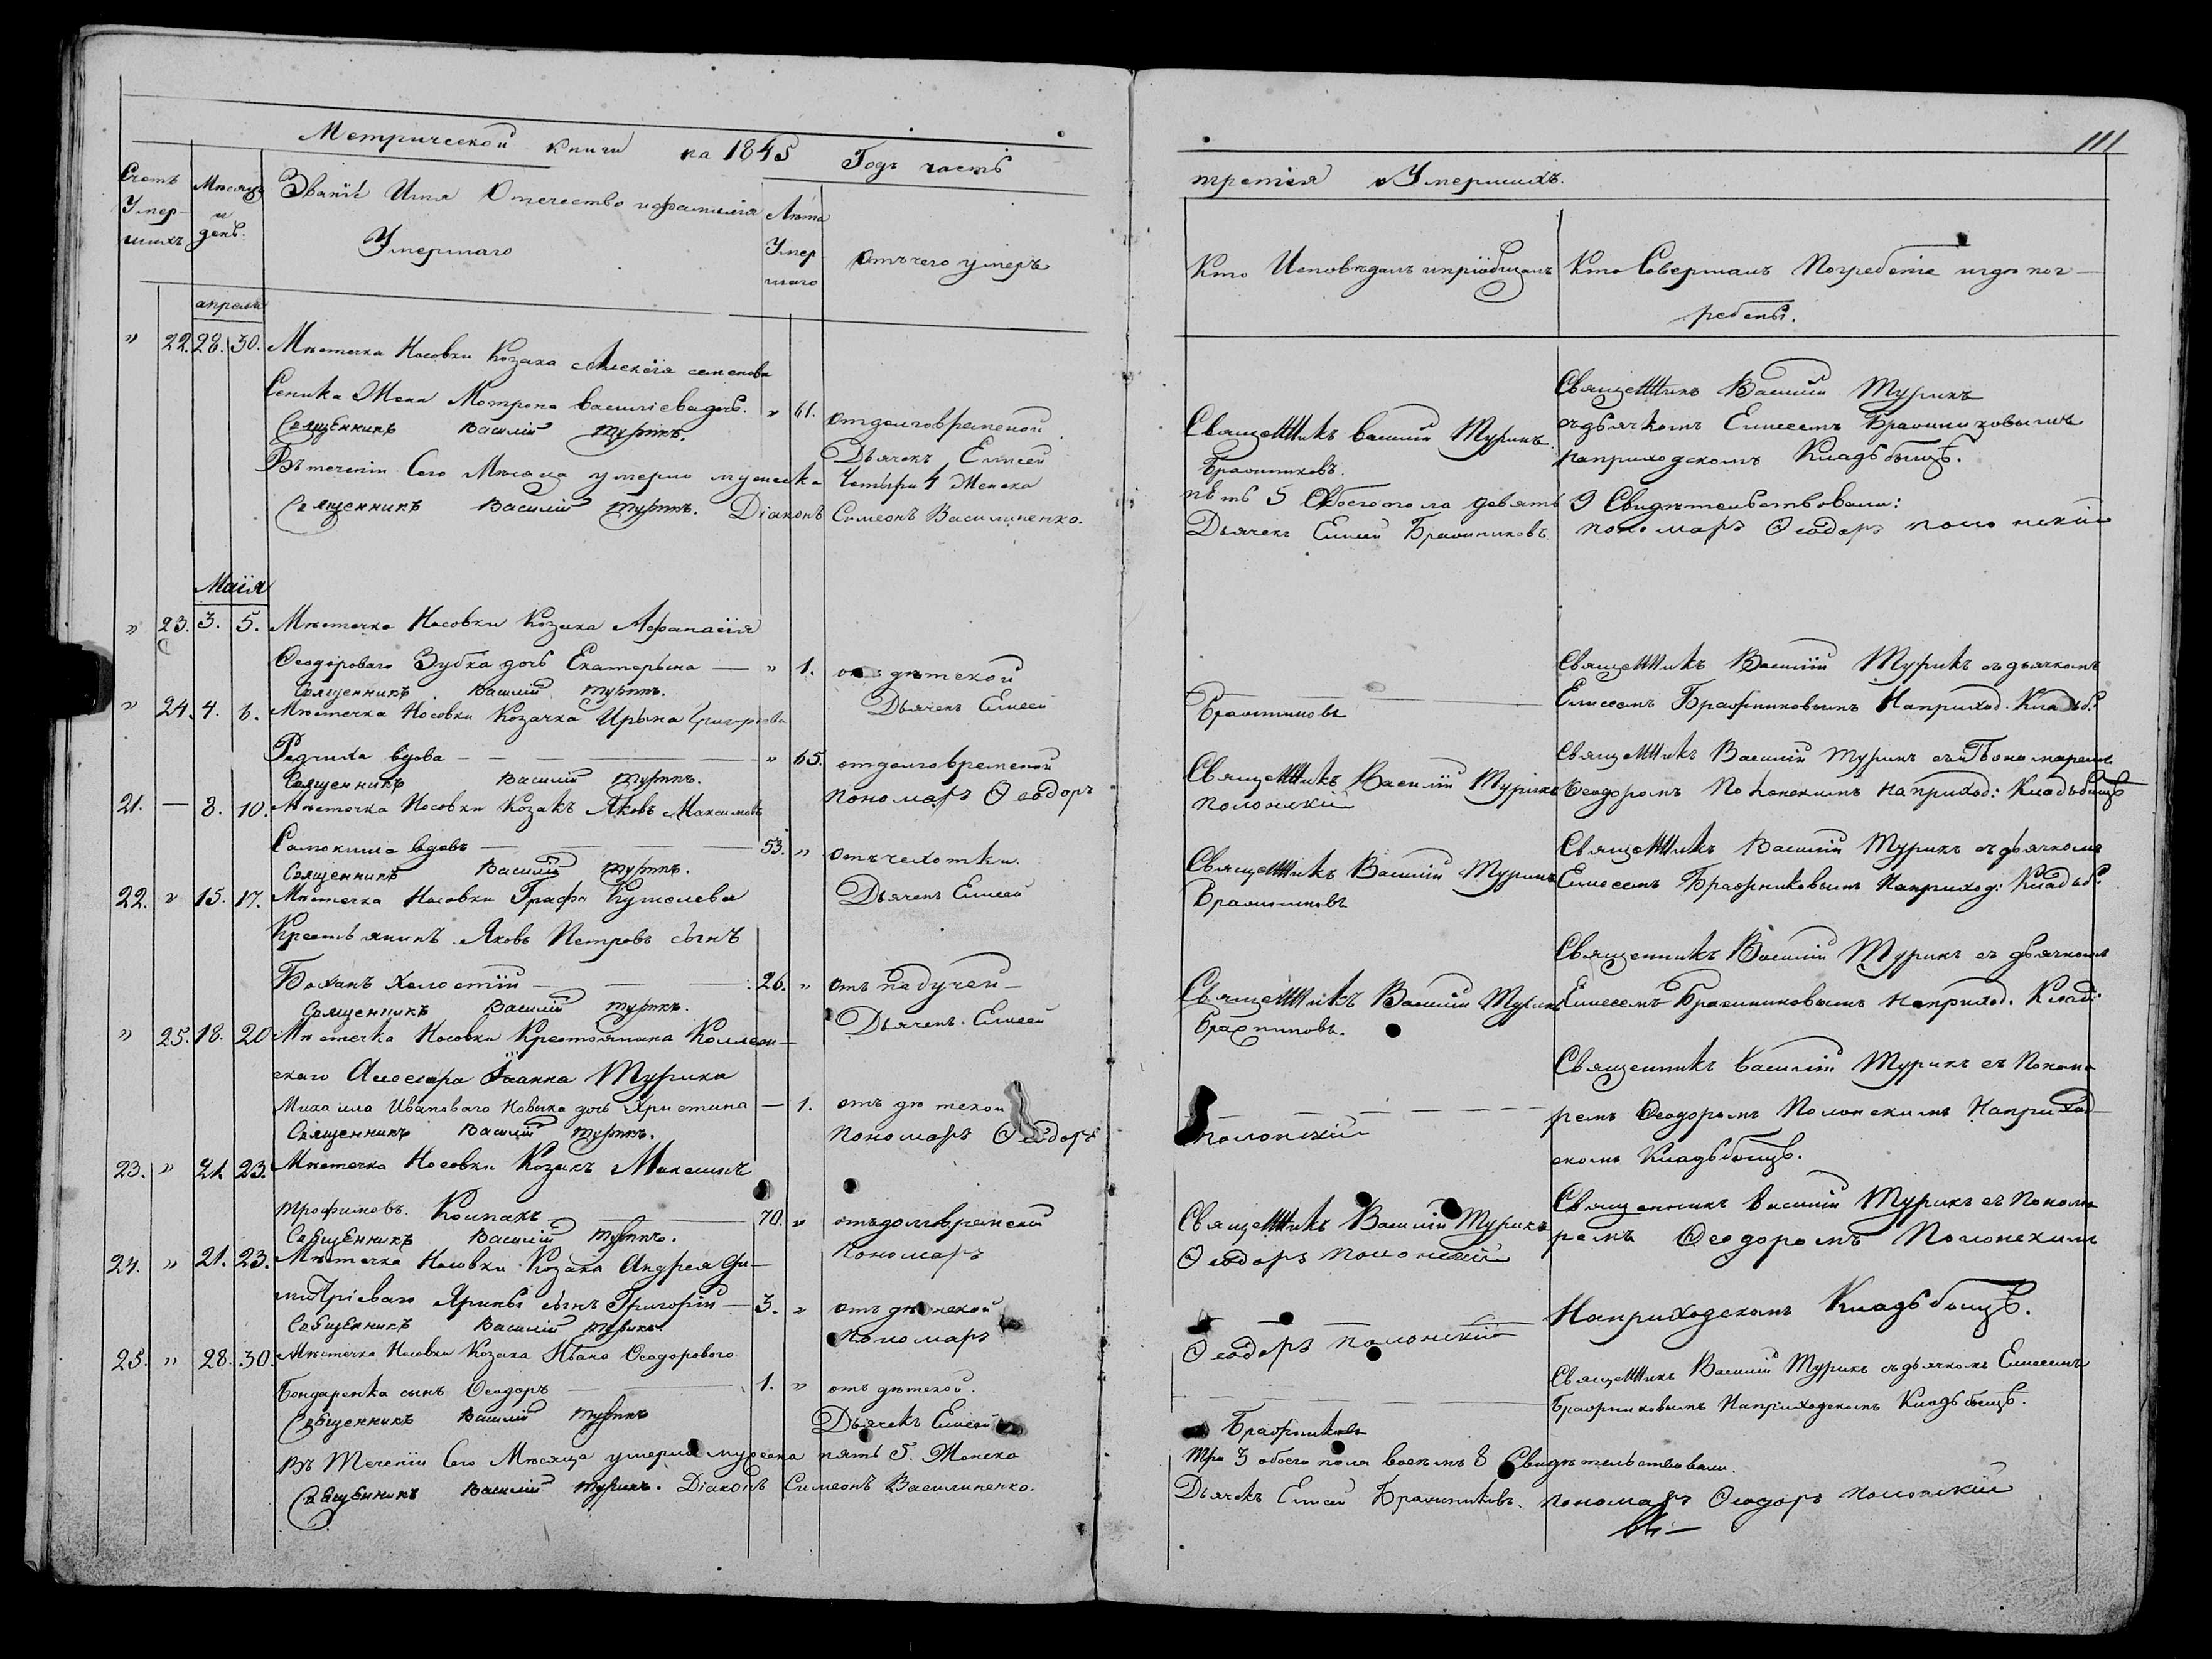 Метрической книги на 1845 Годъ часть
Счетъ Умер-шихъ
Мѣсяцъ и день.
Званіе Имя Отечество и фамилія
Умершаго
Лѣта Умер-шаго
Отъ чего умеръ
апреля
" 22. 28. 30. Мѣстечка Носовки Козака Алексѣя семенова
Сеника Жена Мотрона василіева дочь. " 61. отдолговременой
Священникъ Василій Турикъ. Дьячекъ Елисей
Въ теченіи Сего Мѣсяца умерло мужеска Четыри 4 Женска
Священникъ Василій Турикъ. Діаконъ Симеонъ Василиненко.
Маія
" 23. 3. 5. Мѣстечка Носовки Козака Афанасія
Феодороваго Зубка дочь Екатерына — " 1. отъ дѣтской
Священникъ Василій Турикъ. Дьячекъ Елисей
" 24. 4. 6. Мѣстечка Носовки Козачка Ирына Григорьева
вдова — " 65. отдолговременой
Священникъ Василій Турикъ. пономарь Феодоръ
21. — 8. 10. Мѣстечка Носовки Козакъ Яковъ Максимовъ
вдовъ — 53. " Отъ чехотки.
Священникъ Василій Турикъ. Дьячекъ Елисей
22. " 15. 17. Мѣстечка Носовки Графа Кушелева
Крестьянинъ Яковъ Петровъ сынъ
Боханъ холостій — 26. " отъ падучей —
Священникъ Василій Турикъ. Дьячекъ Елисей
" 25. 18. 20 Мѣстечка Носовки Крестьянина Коллеж-
скаго Ассесора Іоанна Турика
Михаила Ивановаго Новыка дочь Христина — 1. отъ дѣтской
Священникъ Василій Турикъ. пономарь Феодоръ
23. " 21. 23. Мѣстечка Носовки Козакъ Максимъ
Трофимовъ. Колпакъ — 70. " отъ долговременой
Священникъ Василій Турикъ. Пономарь
24. " 21. 23. Мѣстечка Носовки Козака Андрея Ди-
митріеваго Ярыны сынъ Григорій — 3. " отъ дѣтской
Священникъ Василій Турикъ. Пономарь
25. " 28. 30. Мѣстечка Носовки Козака Ивана Феодорового
Бондаренка сынъ Феодоръ — 1. " отъ дѣтской.
Священникъ Василій Турикъ Дьячекъ Елисей
Въ Теченіи Сего Мѣсяца умерло мужеска пять 5. Женска
Священникъ Василій Турикъ. Діаконъ Симеонъ Василиненко.
111
третія о Умершихъ.
Кто Исповѣдалъ и пріобщалъ
Кто Совершалъ Погребеніе и гдѣ пог-
ребены.
Священникъ василій Турикъ.
Бражниковъ.
Священникъ Василій Турикъ
съ дьячкомъ Елисеемъ Бражниковымъ
на приходскомъ Кладбыщѣ.
пять 5 Обоего пола девять 9 Свидѣтельствовали:
Дьячекъ Елисей Бражниковъ. пономарь Феодоръ полонскій
Бражниковъ
Священникъ Василій Турикъ съ дьячкомъ
Елисеемъ Бражниковымъ На приход. Кладб:
Священникъ Василій Турикъ
полонскій
Священникъ Василій Турикъ съ Пономаремъ
Феодоромъ Полонскимъ на приход: Кладбыщѣ
Священникъ Василій Турикъ
Бражниковъ
Священникъ Василій Турикъ съ дьячкомъ
Елисеемъ Бражниковымъ На приход: Кладб:
Священникъ Василій Турикъ
Бражниковъ.
Священникъ Василій Турикъ съ дьячкомъ
Елисеемъ Бражниковымъ На приход. Кладб:
полонскій
Священникъ василій Турикъ съ Понома-
ремъ Феодоромъ Полонскимъ На приход-
скомъ Кладбыщѣ.
Священникъ Василій Турикъ
Феодоръ полонскій
Священникъ василій Турикъ съ Понома-
ремъ Феодоромъ Полонскимъ
Феодоръ полонскій
На приходскомъ Кладбыщѣ.
Бражниковъ
Священникъ Василій Турикъ съ дьячкомъ Елисеемъ
Бражниковымъ На приходскомъ Кладбыщѣ.
Три 3 обоего пола восемъ 8 Свидѣтельствовали.
Дьячекъ Елисей Бражниковъ. пономарь Феодоръ полонскій